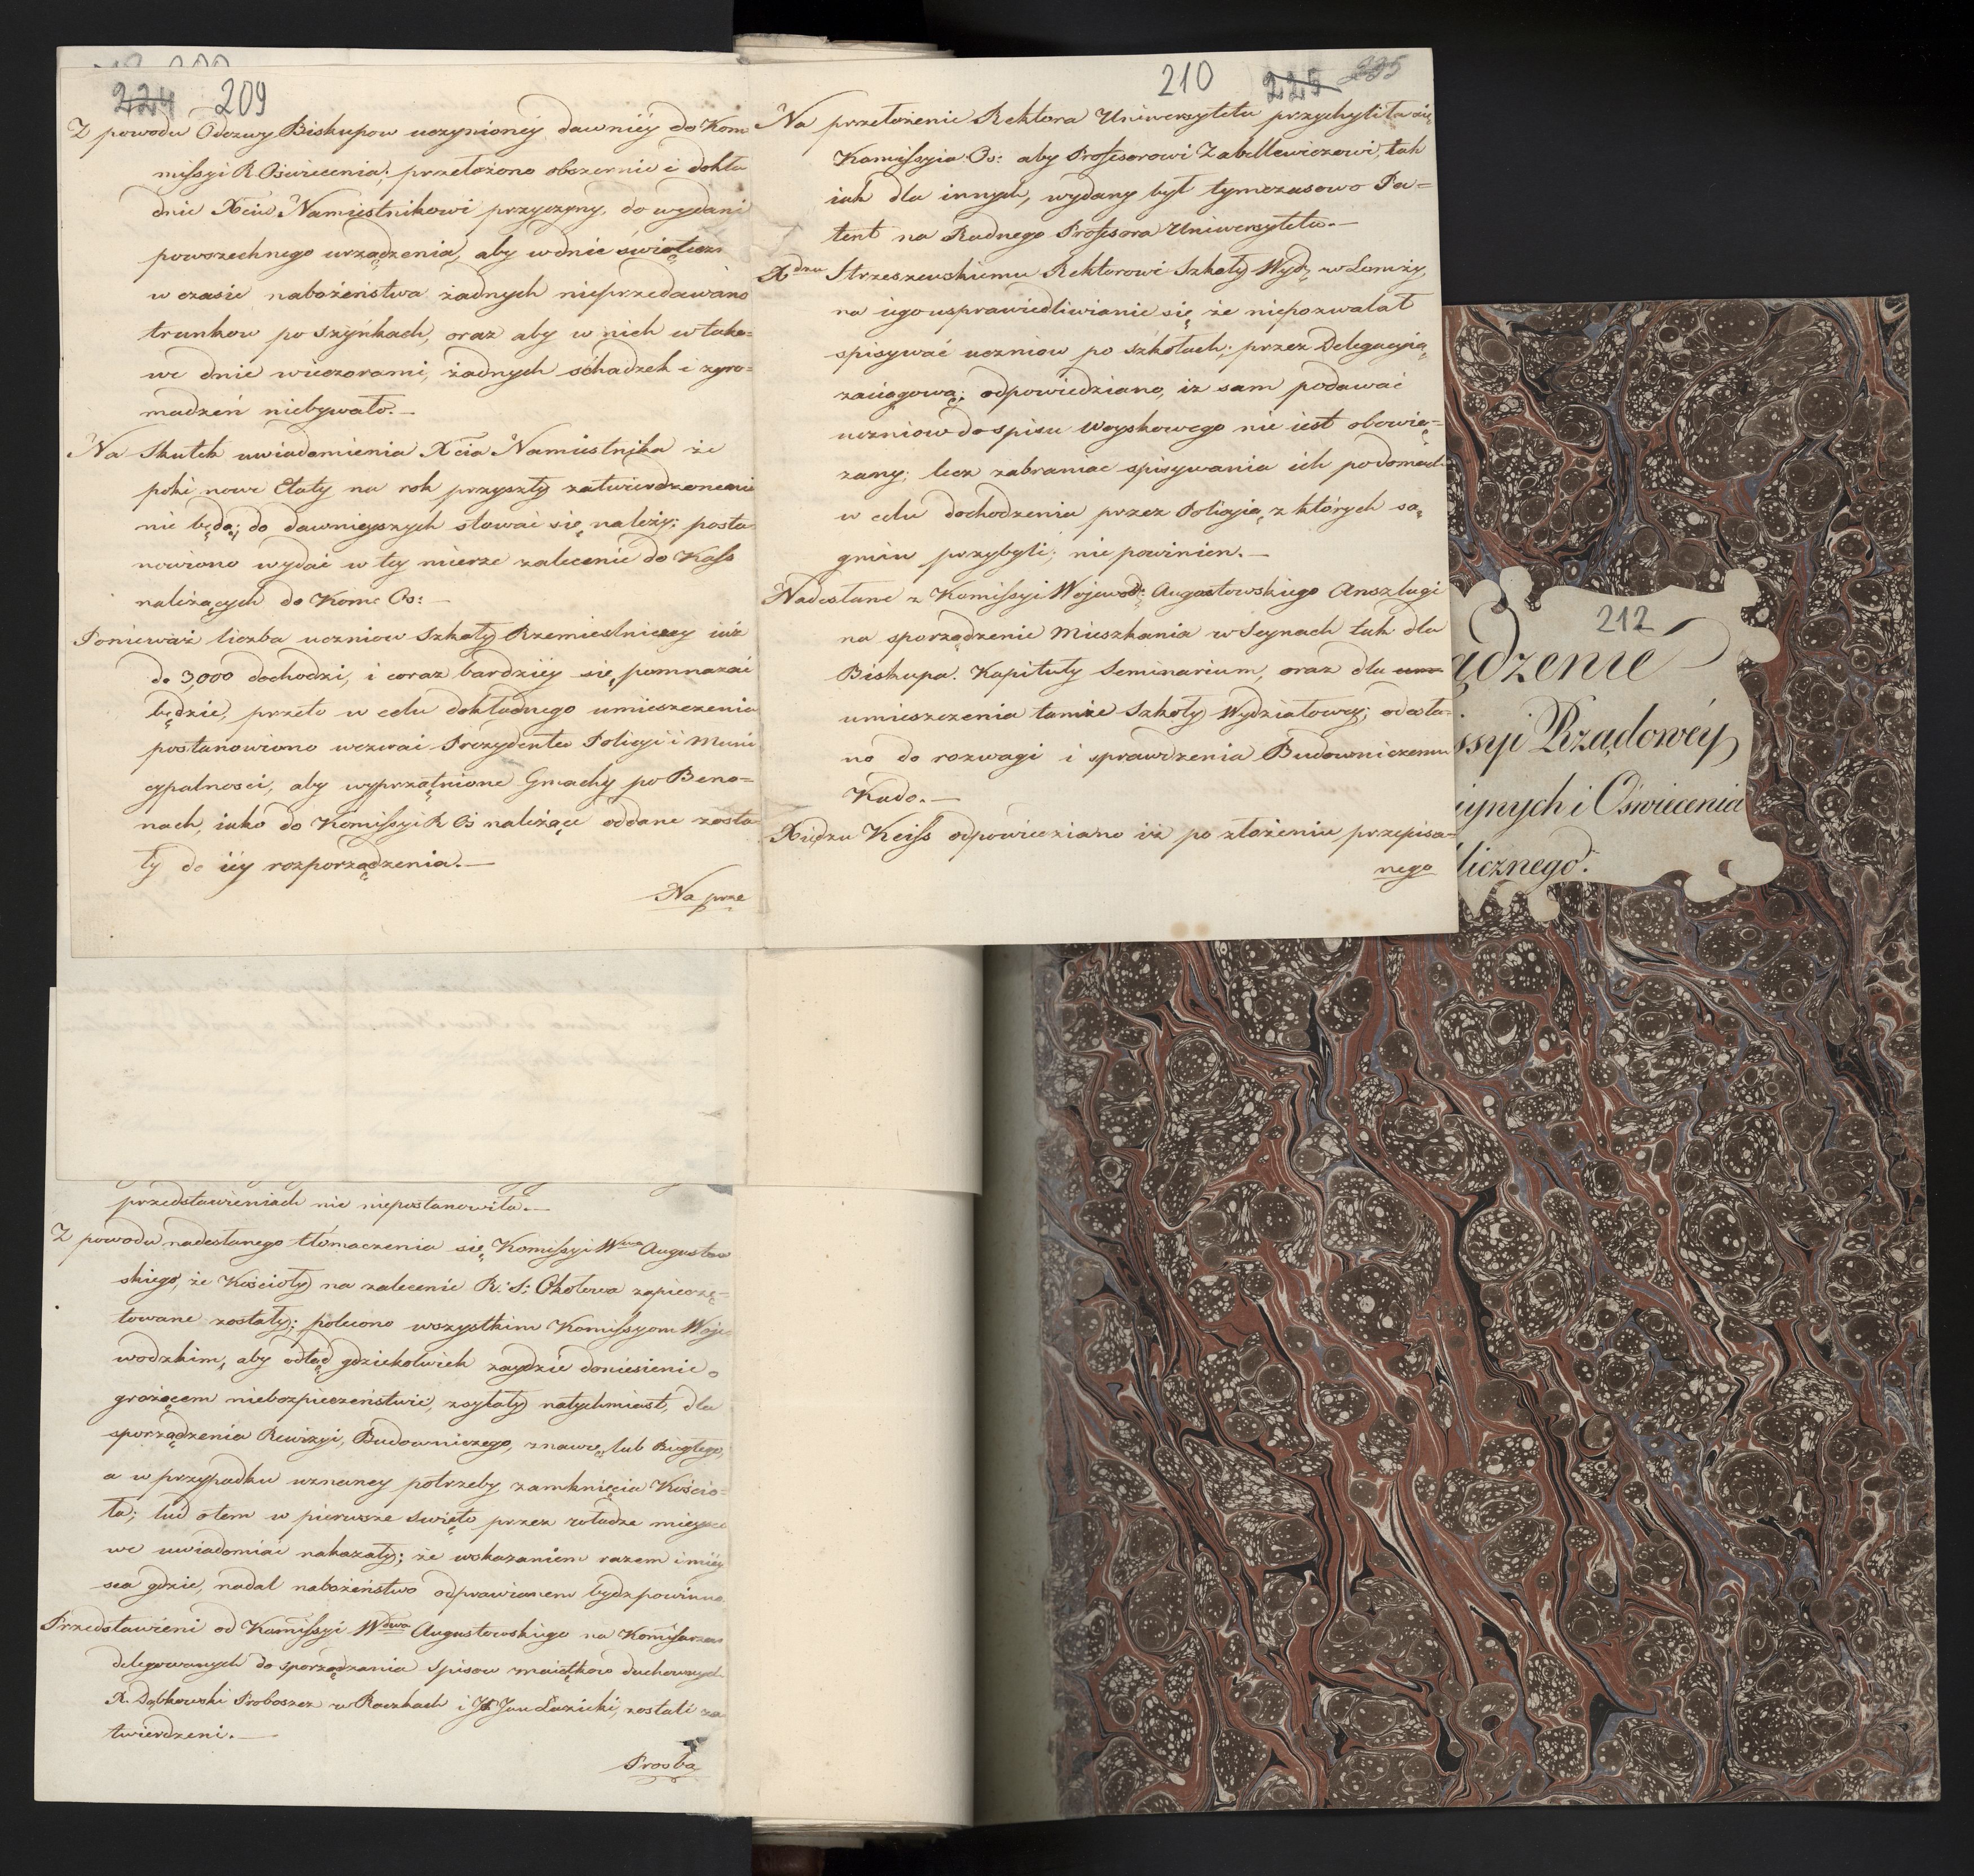 224 209
Z powodu Odezwy Biskupow uczynioney dawniéy do Kom
missyi R. Oświecenia; przełożono obszernie i dokła
dnie Xciu Namiestnikowi przyczyny, do wydani
powszechnego urządzenia, aby w dnie świąteczn
w czasie nabożeństwa żadnych nieprzedawano
trunkow po szyńkach, oraz aby w nich w tako=
we dnie wieczorami, żadnych schadzek i zgro=
madzeń niebywało.—
Na Skutek uwiadomienia Xcia Namiestnika że
póki nowe Etaty na rok przyszły zatwierdzonemi
nie będą; do dawnieyszych stować się należy; posta
nowiono wydać w tey mierze zalecenie do Kass
należących do Kome Os:—
Ponieważ liczba uczniow Szkoły Rzemieślniczey iuż
do 3,000 dochodzi, i coraz bardziéy się pomnażać
będzie, przeto w celu dokładnego umieszczenia
postanowiono wezwać Prezydenta Policyi i Muni
cypalnosci, aby wyprzątnione Gmachy po Beno=
nach, iako do Komissyi R. Oś należące oddane zosta
ły do iéy rozporządzenia.—
Na prze
210 225 225
Na przełożenie Rektora Uniwersytetu przychyliła się
Komissyia Os: aby Profesorowi Zabellewiczowi, tak
iak dla innych, wydany był tymczasowo Pa=
tent na Radnego Profesora Uniwersytetu.—
Xdzu Strzeszewskiemu Rektorowi Szkoły Wydz. w Łomży,
na iego usprawiedliwianie się że niepozwalał
spisywać uczniow po szkołach; przez Delegacyią
zaciągową; odpowiedziano, iz sam podawać
uczniow do spisu Woyskowego nie iest obowią=
zany; lecz zabraniac spisywania ich po domach
w celu dochodzenia przez Policyią z których są
gmin przybyli; nie powinien.—
Nadesłane z Komissyi Wojewod: Augustowskiego Anszlagi
na sporządzenie Mieszkania w Seynach tak dla
Biskupa. Kapituły Seminarium, oraz dla
umieszczenia tamże Szkoły Wydziałowey; odesła=
no do rozwagi i sprawdzenia Budowniczemu
Kudo.—
Xiędzu Keiss odpowiedziano iż po złożeniu przepisa=
nego
212
ądzenie
ssyi Rządowéy
iynych i Oświecenia
licznego.
przedstawieniach nic niepostanowiła.—
Z powodu nadesłanego tłómaczenia się Komissyi Wdwa Augustow
skiego, że Kościoły na zalecenie R: S: Okołowa zapieczę=
towane zostały; polecono wszystkim Komissyom Woje
wodzkim, aby odtąd gdziekolwiek zaydzie doniesienie o
grożącem niebezpieczeństwie, zsyłały natychmiast, dla
sporządzenia Rewizyi, Budowniczego, znawcę lub Biegłego,
a w przypadku uznaney potrzeby zamknięcia Kościo=
ła; lud otem w pierwsze święto przez władze mieysco
we uwiadomiać nakazały; ze wskazaniem razem i miéy
sca gdzie, nadal nabożeństwo odprawianem bydz powinno.
Przedstawieni od Komissyi Wdwa Augustowskiego na Komisarzow
delegowanych do sporządzania Spisow maiątkow duchownych
X. Dąbkowski Proboszcz w Raczkach i JX Jan Łazicki, zostali za
twierdzeni.—
Prosba